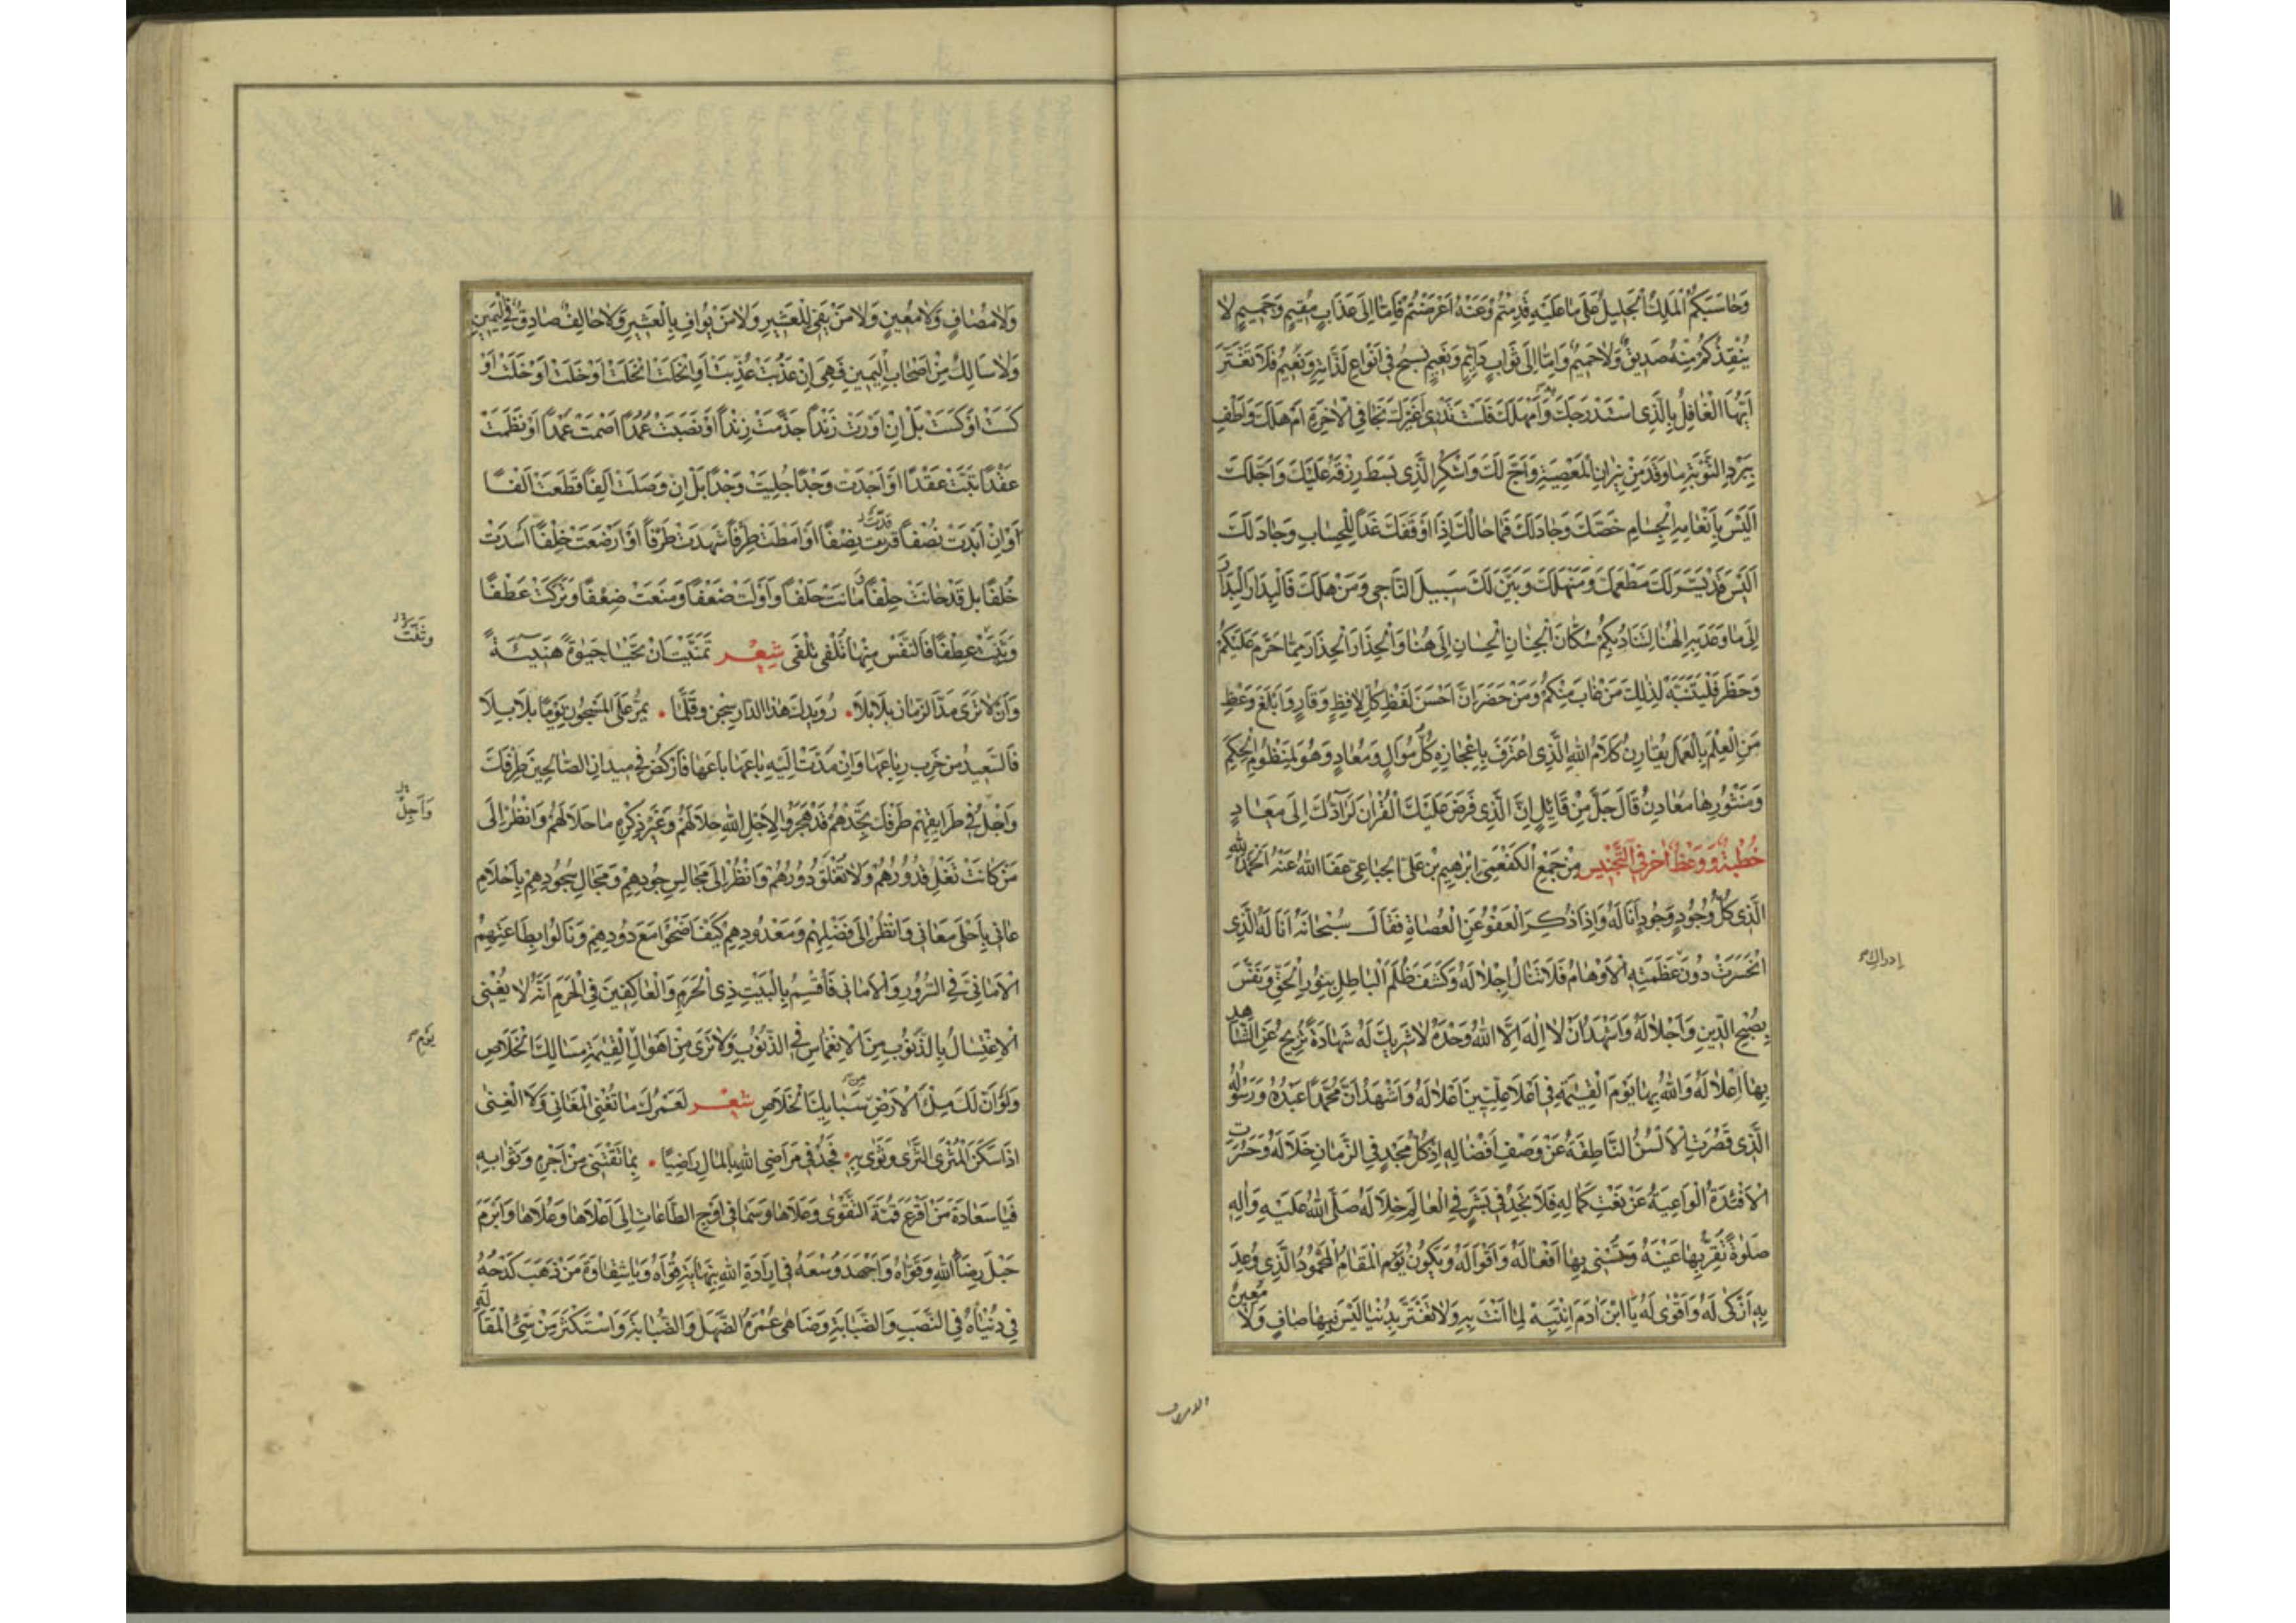 وَحَاسَبَكُمُ الْمَلِكُ الْجَلِيلُ عَلَى مَا عَلَيْهِ قَدِمْتُمْ وَعَنْهُ اَعْرَضْتُمْ فَاِمَّا اِلَى عَذَابٍ مُقِيمٍ وَحَمِيمٍ لَا
يُنْقِذُكُمْ مِنْهُ صَدِيقٌ وَلَا حَمِيمٌ وَاِمَّا اِلَى ثَوَابٍ دَائِمٍ وَنَعِيمٍ فِي اَنْوَاعِ لَذَّاتِهِ وَنَعِيمُ فَلَا تَغْتَرَّ
اَيُّهَا الْغَافِلُ بِالَّذِي اسْتَدْرَجَكَ وَاَمْهَلَكَ فَلَسْتَ تَدْرِي اَغَيْرُكَ نَجَا فِي الْاٰخِرَةِ اَمْ هَلَكَ وَاَطْفِ
بِبَرْدِ التَّوْبَةِ مَا وَقَدَ مِنْ نِيرَانِ الْمَعْصِيَةِ وَاَجَّ لَكَ وَاشْكُرِ الَّذِي بَسَطَ رِزْقَهُ عَلَيْكَ وَاَجَّلَكَ
اَلَيْسَ بِاَنْعَامِهِ الْجِسَامِ خَصَّكَ وَجَادَ لَكَ فَمَا حَالُكَ اِذَا اَوْقَفَكَ غَدًا لِلْحِسَابِ وَجَادَلَكَ
اَلَيْسَ قَدْ يَسَّرَ لَكَ مَطْعَمَكَ وَمَنْهَلَكَ وَبَيَّنَ لَكَ سَبِيلَ النَّاجِي وَمَنْ هَلَكَ فَالْبِدَارَ الْبِدَارَ
اِلَى مَا وَعَدَ بِهِ اِلٰهُنَا لِتُنَادِيَكُمْ سُكَّانُ الْجِنَانِ الْحِسَانِ اِلَى هُنَا وَالْحِذَارَ الْحِذَارَ مِمَّا حَرَّمَ عَلَيْكُمْ
وَحَظَرَ فَلْيَتَنَبَّهْ لِذٰلِكَ مَنْ غَابَ مِنْكُمْ وَمَنْ حَضَرَ اِنَّ اَحْسَنَ لَفْظِ كُلِّ لَافِظٍ وَقَارٍ وَاَبْلَغَ وَعْظٍ
مَنِ الْعِلْمُ بِالْعَمَلِ يُقَارِنُ كَلَامُ اللهِ الَّذِي اعْتَرَفَ بِاِعْجَازِهِ كُلُّ سُوَالٍ وَمُعَادٍ وَهُوَ لِمَنْظُومِ الْحِكَمِ
وَمَنْثُورِهَا مَعَادِنُ قَالَ جَلَّ مِنْ قَائِلٍ اِنَّ الَّذِي فَرَضَ عَلَيْكَ الْقُرْاٰنَ لَرَادُّكَ اِلَى مَعَادٍ
خُطْبَةٌ وَوَعْظٌ اٰخَرُ فِي التَّجْنِيسِ مِنْ جَمْعِ الْكَفْعَمِيّ اِبْرٰهِيمَ بْنِ عَلِيّ الْجُبَاعِيّ عَفَا اللهُ عَنْهُ اَلْحَمْدُ لِلّٰهِ
الَّذِي كُلُّ وُجُودٍ وَجُودٍ اَنَالَهُ وَاِذَا ذُكِرَ الْعَفْوُ عَنِ الْعُصَاةِ فَقَالَ سُبْحَانَهُ اَنَا لَهُ الَّذِي
انْحَسَرَتْ دُونَ عَظَمَتِهِ الْاَوْهَامُ فَلَا تَنَالُ اِجْلَالَهُ وَكَشَفَ ظُلَمَ الْبَاطِلِ بِنُورِ الْحَقِّ وَنَفَّسَ
ادراك
بِصُبْحِ الدِّينِ وَاَجْلَالَهُ وَاَشْهَدُ اَنْ لَا اِلٰهَ اِلَّا اللهُ وَحْدَهُ لَا شَرِيكَ لَهُ شَهَادَةً تُزِيحُ عَنِ الشَّاهِدِ
بِهَا اِعْلَالَهُ وَاللهُ بِهَا يَوْمَ الْقِيٰمَةِ فِي اَعْلَا عِلِّيِّينَ اَعْلَا لَهُ وَاَشْهَدُ اَنَّ مُحَمَّدًا عَبْدُهُ وَرَسُولُهُ
الَّذِي قَصُرَتِ الْاَلْسُنُ النَّاطِقَةُ عَنْ وَصْفِ اَفْضَالِهِ اِذْ كُلُّ مَجْدٍ فِي الزَّمَانِ خَلَا لَهُ وَحَسُرَتِ
الْاَفْئِدَةُ الْوَاعِيَةُ عَنْ نَعْتِ كَمَالِهِ فَلَا نَجِدُ فِي بَشَرٍ فِي الْعَالَمِ خِلَالَهُ صَلَّى اللهُ عَلَيْهِ وَاٰلِهِ
صَلٰوةً تُقِرُّ بِهَا عَيْنَهُ وَ بِهَا اَفْعَالَهُ وَاَقْوَالَهُ وَيَكُونُ يَوْمَ الْمَقَامِ الْمَحْمُودِ الَّذِي وُعِدَ
بِهِ اَزْكَى لَهُ وَاَقْوَى لَهُ يَا ابْنَ اٰدَمَ انْتَبِهْ لِمَا اَنْتَ بِهِ وَلَا تَغْتَرَّ بِدُنْيَا لَيْسَ فِيهَا صَافٍ وَلَا مَعِينٌ
وَلَا مُصَافٍ وَلَا مُعِينٍ وَلَا مَنْ يَفِي لِلْعَشِيرِ وَلَا مَنْ يُوَافِي بِالْعَشِيرِ وَلَا حَالِفٌ صَادِقٌ فِي الْيَمِينِ
وَلَا سَالِكٌ مِنْ اَصْحَابِ الْيَمِينِ فَهِيَ اِنْ عَذُبَتْ عَذَّبَتْ اَوْ اَوْ
كَسَتْ اَوْكَسَتْ بَلْ اِنْ اَوْرَتْ زَنْدًا جَذَّمَتْ زَنْدًا اَوْ نَصَبَتْ عُمُدًا اَصْمَتْ عَمْدًا اَوْ نَظَمَتْ
عِقْدًا بَتَّتْ عَقْدًا اَوْ اَجَدَتْ وَجْدًا وَجْدًا بَلْ اِنْ وَصَلَتْ اَلِفًا قَطَعَتْ اَلْفًا
اَوْ اِنْ اَبْدَتْ نُصْفًا قَدَّتْ نِصْفًا اَوْ اَمْطَتْ طِرْفًا شَهِدَتْ طَرْفًا اَوْ اَرْضَعَتْ خِلْفًا اَسْدَتْ
خُلْفًا بَلْ قَدْ خَانَتْ حِلْفًا مَانَتْ حَلْفًا وَاَوْلَتْ ضَعْفًا وَمَنَعَتْ ضِعْفًا وَتَرَكَتْ عَطْفًا
وَثَنَتْ عِطْفًا فَالنَّفْسُ مِنْهَا تُلْفَى تَلْفَى شِعْر تَمَنَّيْتَ اَنْ تَحْيَا حَيٰوةً هَنِيئَةً
وَاَنْ لَا تَرَى مَدَّ الزَّمَانِ بَلَابِلَا • رُوَيْدَكَ هٰذَا الدَّارُ سِجْنٌ وَقَلَّمَا • يَمُرُّ عَلَى الْمَسْجُونِ يَوْمًا بِلَا بَلَا
فَالسَّعِيدُ مَنْ خَرِبَ رِبَاعَهَا وَاِنْ مَدَّتْ اِلَيْهِ بَاعَهَا بَاعَهَا فَارْكُضْ فِي مِيدَانِ الصَّالِحِينَ طِرْفَكَ
وَاَجِلْ فِي طَرَايِقِهِمْ طَرْفَكَ تَجِدْهُمْ قَدْ هَجَرُوا لِاَجْلِ اللهِ حَلَالَهُمْ وَغَيْرُ ذِكْرِهِ مَا حَلَا لَهُمْ وَانْظُرْ اِلَى
وَاَجِلْ
مَنْ كَانَتْ تَغْلِي قُدُورُهُمْ وَلَا تُغْلَقُ دُورُهُمْ وَانْظُرْ اِلَى مَجَالِسِ جُودِهِمْ وَمَجَالِ سُجُودِهِمْ بِاَحْلَامِ
عَانِي بِاَحْلَى مَعَانِي وَانْظُرْ اِلَى فَضْلِهِمْ وَمَعْدُودِهِمْ كَيْفَ اَضْحَوْا مَعَ دُودِهِمْ وَنَالُوا بِطَاعَتِهِمْ
الْاَمَانِيَّ فِي السُّرُورِ وَالْاَمَانِي فَاُقْسِمُ بِالْبَيْتِ ذِي الْحَرَمِ وَالْعَاكِفِينَ فِي الْحَرَمِ اَنَّهُ لَا يُغْنِي
الْاِغْتِسَالُ بِالذَّنُوبِ مِنَ الْاِنْغِمَاسِ فِي الذُّنُوبِ وَلَا تَرَى مِنْ اَهْوَالِ الْقِيٰمَةِ مَسَالِكَ الْخَلَاصِ
يَوْمِ
وَلَوْ اَنَّ لَكَ مِلْءَ الْاَرْضِ مِنْ سَبَايِكَ الْخَلَاصِ شِعْر لَعَمْرُكَ مَا تُغْنِي الْمَغَانِي وَلَا الْغِنَى
اِذَا سَكَنَ الْمُثْرِي الثَّرَى وَثَوَى بِهِ • فَجُدْ فِي مَرَاضِي اللهِ بِالْمَالِ رَاضِيًا • بِمَا تَقْتَنِي مِنْ اَجْرِهِ وَثَوَابِهِ
فَيَا سَعَادَةَ مَنْ اَفْرَعَ قُنَّةَ التَّقْوٰى وَعَلَاهَا وَسَمَا فِي اَوْجِ الطَّاعَاتِ اِلَى اَعْلَاهَا وَعُلَاهَا وَاَبْرَمَ
حَبْلَ رِضَا اللهِ وَقَوَّاهُ وَاَجْهَدَ وُسْعَهُ فِي اِرَادَةِ اللهِ وَيَا شَقَاوَةَ مَنْ ذَهَبَ كَدْحُهُ
فِي دُنْيَاهُ فِي النَّصَبِ وَالضَّبَابَةِ وَضَاهَى عُمْرُهُ الضَّهَلَ وَالصُّبَابَةَ وَاسْتَكْثَرَ مِنْ سَيِّئِ الْمَقَالَةِ